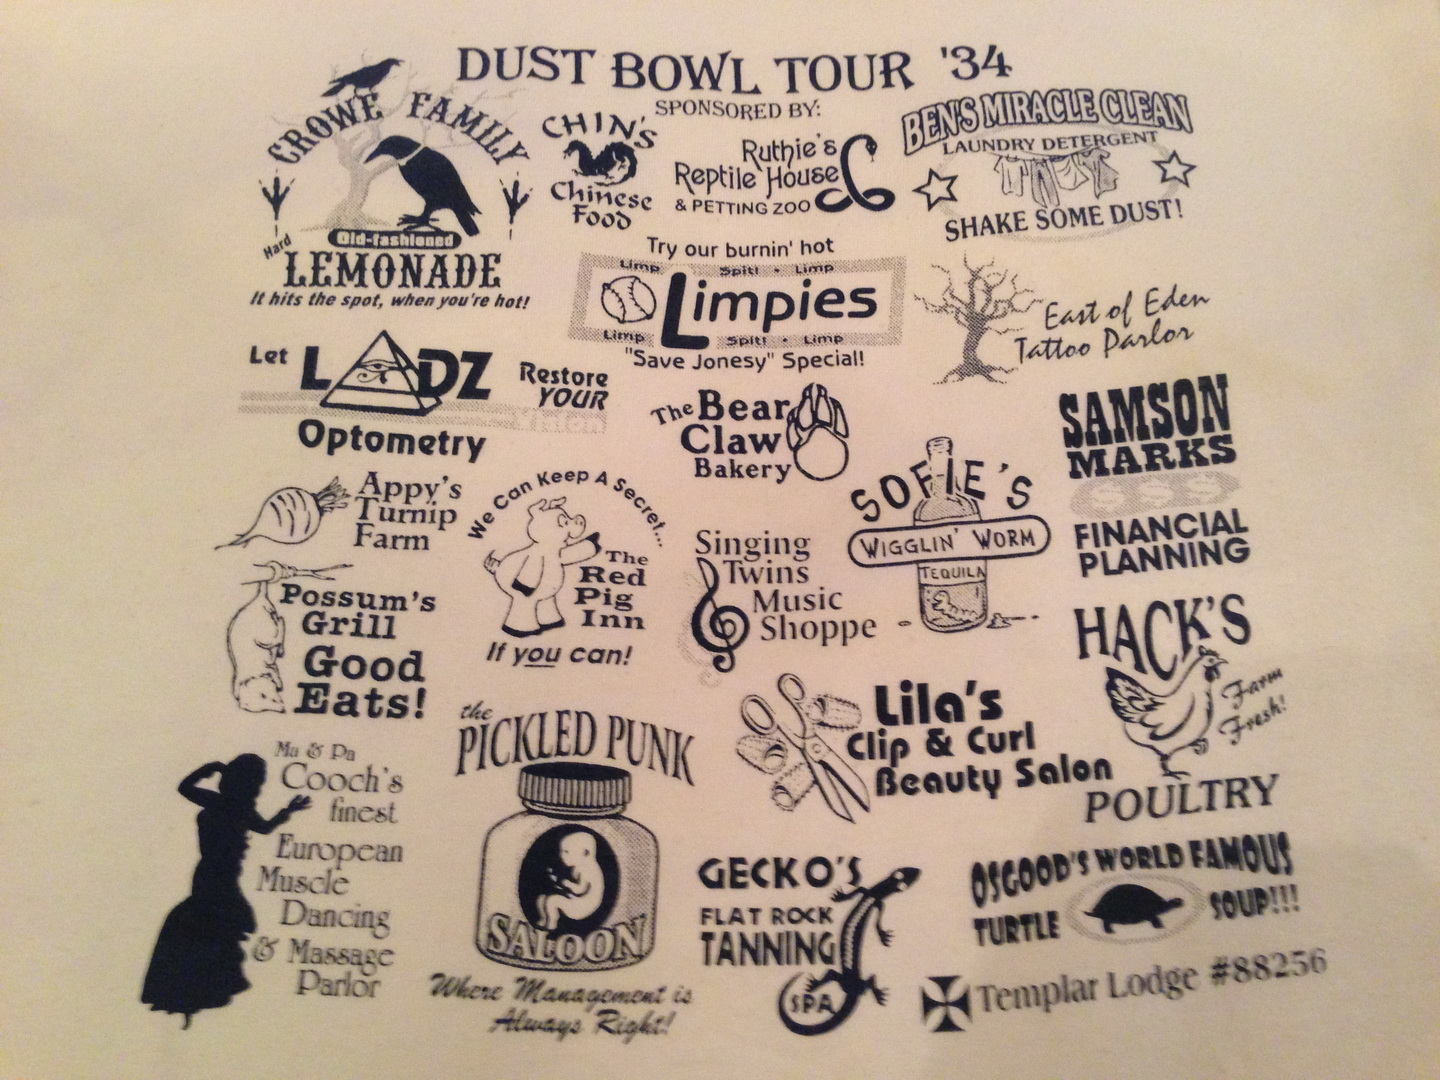 DUST BOWL TOUR '34
SPONSORED BY:
CROWE FAMILY
Old-fashioned
Hard
LEMONADE
It hits the spot, when you're hot!
CHIN'S
Chinese
Food
Ruthie's
Reptile House
& PETTING ZOO
BEN'S MIRACLE CLEAN
LAUNDRY DETERGENT
SHAKE SOME DUST!
Try our burnin' hot
Limp Spit! • Limp
Limpies
Limp Spit! • Limp
"Save Jonesy" Special!
East of Eden
Tattoo Parlor
Let LODZ Restore
YOUR
Vision
Optometry
The Bear
Claw
Bakery
SAMSON
MARKS
$ $ $
FINANCIAL
PLANNING
Appy's
Turnip
Farm
We Can Keep A Secret...
The
Red
Pig
Inn
If you can!
SOFIE'S
WIGGLIN' WORM
TEQUILA
Singing
Twins
Music
Shoppe
Possum's
Grill
Good
Eats!
HACK'S
Farm
Fresh!
POULTRY
the
PICKLED PUNK
SALOON
Where Management is
Always Right!
Lila's
Clip & Curl
Beauty Salon
Ma & Pa
Cooch's
finest
European
Muscle
Dancing
& Massage
Parlor
GECKO'S
FLAT ROCK
TANNING
SPA
OSGOOD'S WORLD FAMOUS
TURTLE SOUP!!!
Templar Lodge #88256